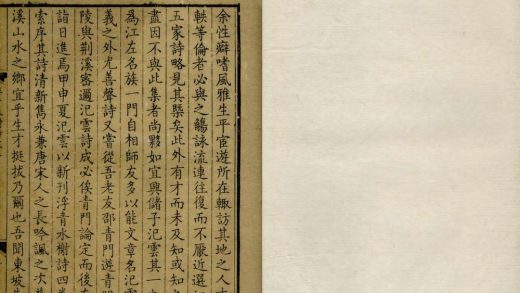 余性癖嗜風雅生平宦遊所在輙訪其地之人
軼等倫者必與之觴詠流連往復而不厭近選
五家詩略見其槩矣此外有才而未及知或知
盡因不與此集者尚夥如宜興儲子氾雲其一
為江左名族一門自相師友多以能文章名氾
義之外尤善聲詩又嘗從吾老友邵青門遊青
陵與荆溪密邇氾雲詩成必俟青門論定而後
詣日進焉甲申夏氾雲以新刊浮青水榭詩四
索序其詩清新雋永兼唐宋人之長吟諷之次
溪山水之鄉宜乎生才挺拔乃爾也吾聞東坡